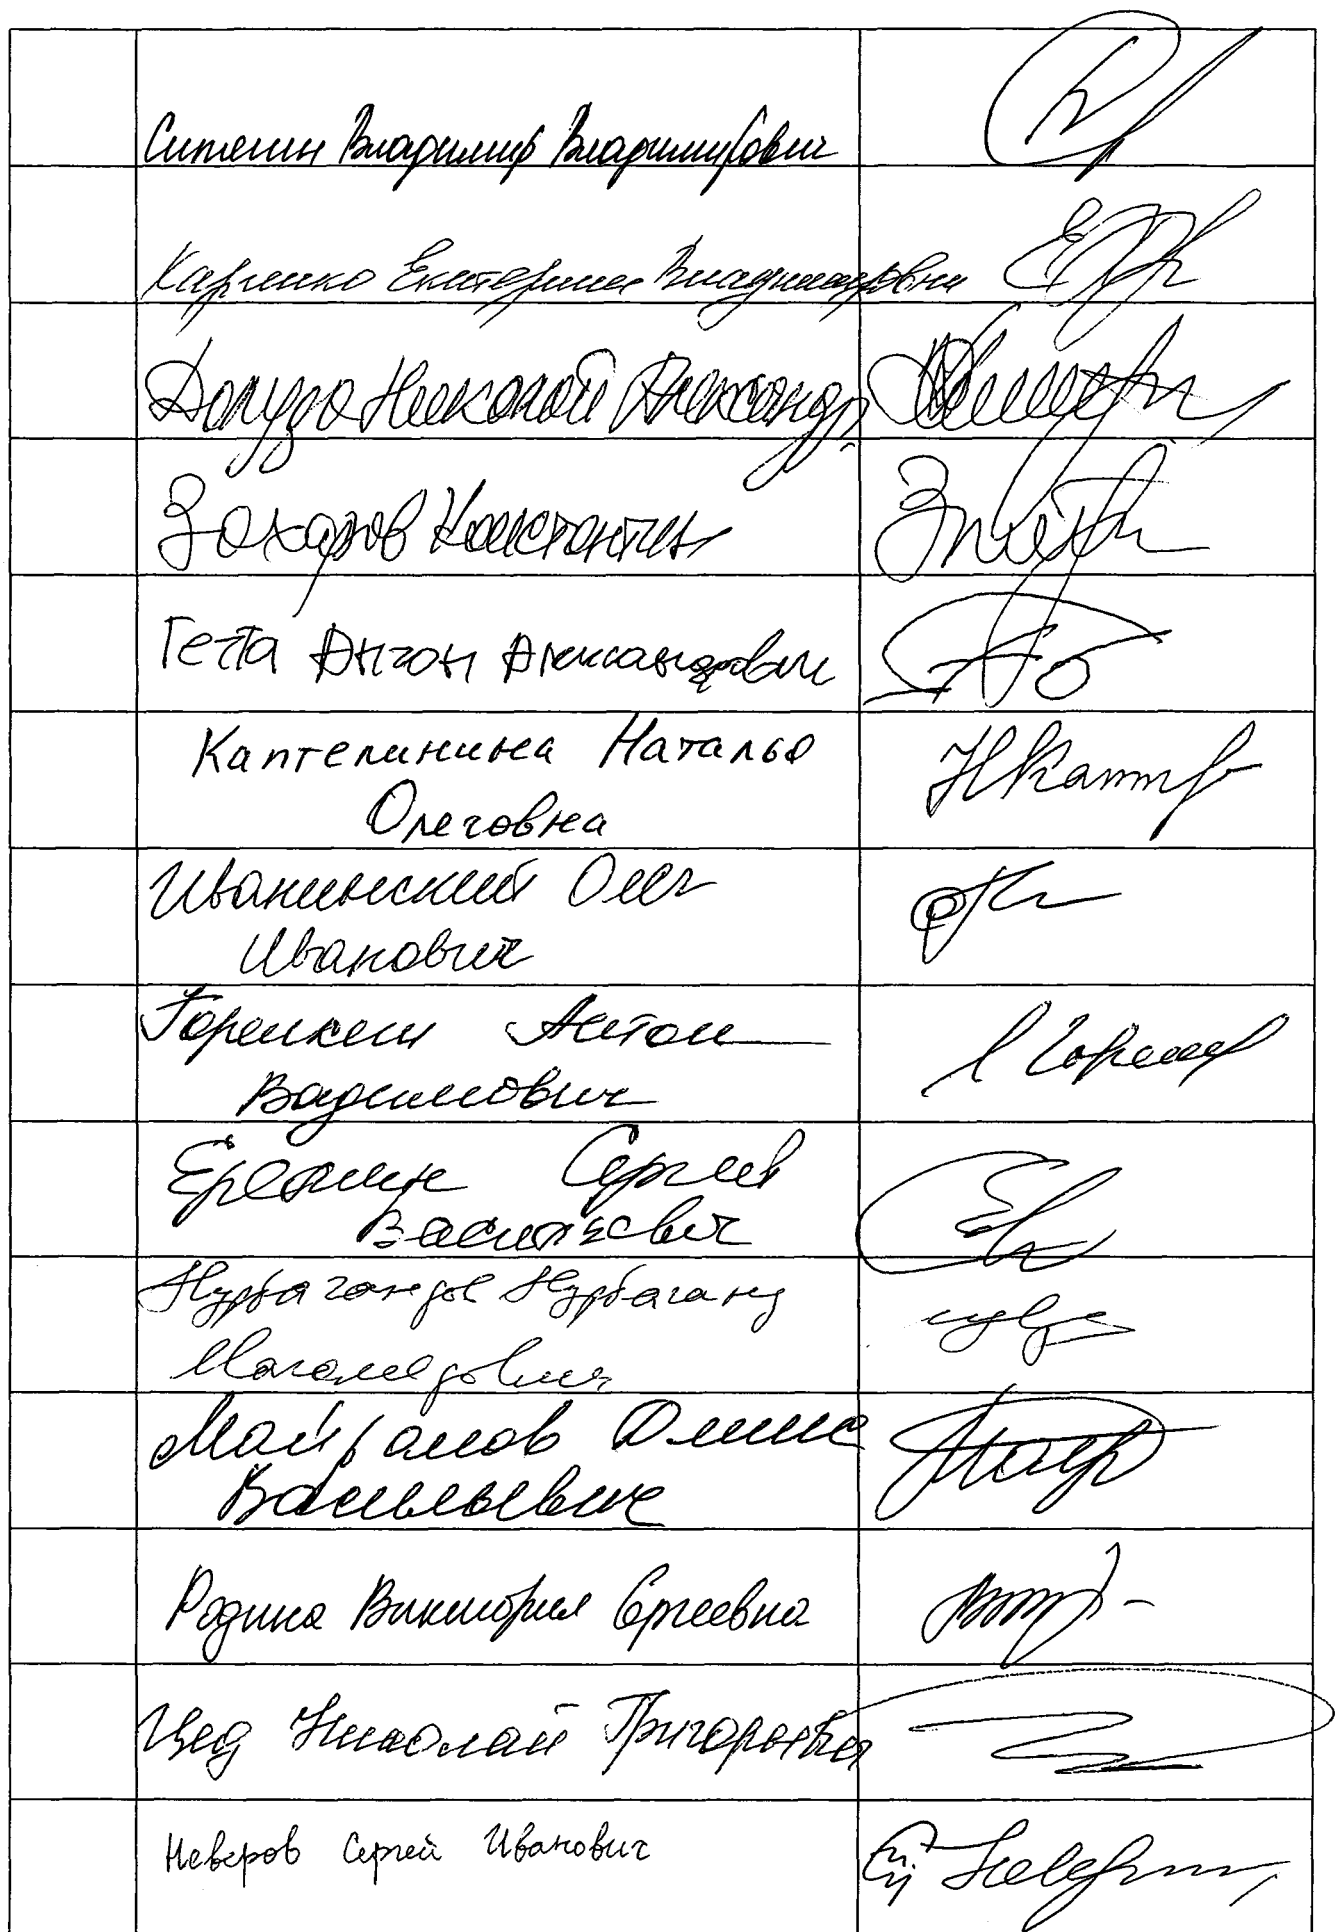 Ситенин Владимир Владимирович
Карпенко Екатерина Владимировна
Долуда Николай Александр.
Захаров Константин
Гетта Антон Александрович
Каптелинина Наталья
Олеговна
Иванинский Олег
Иванович
Горелкин Антон
Вадимович
Еремин Сергей
Васильевич
Нурбагандов Нурбаганд
Магомедович
Майрамов
Васильевич
Родина Виктория Сергеевна
Цед Николай Григорьевич
Неверов Сергей Иванович